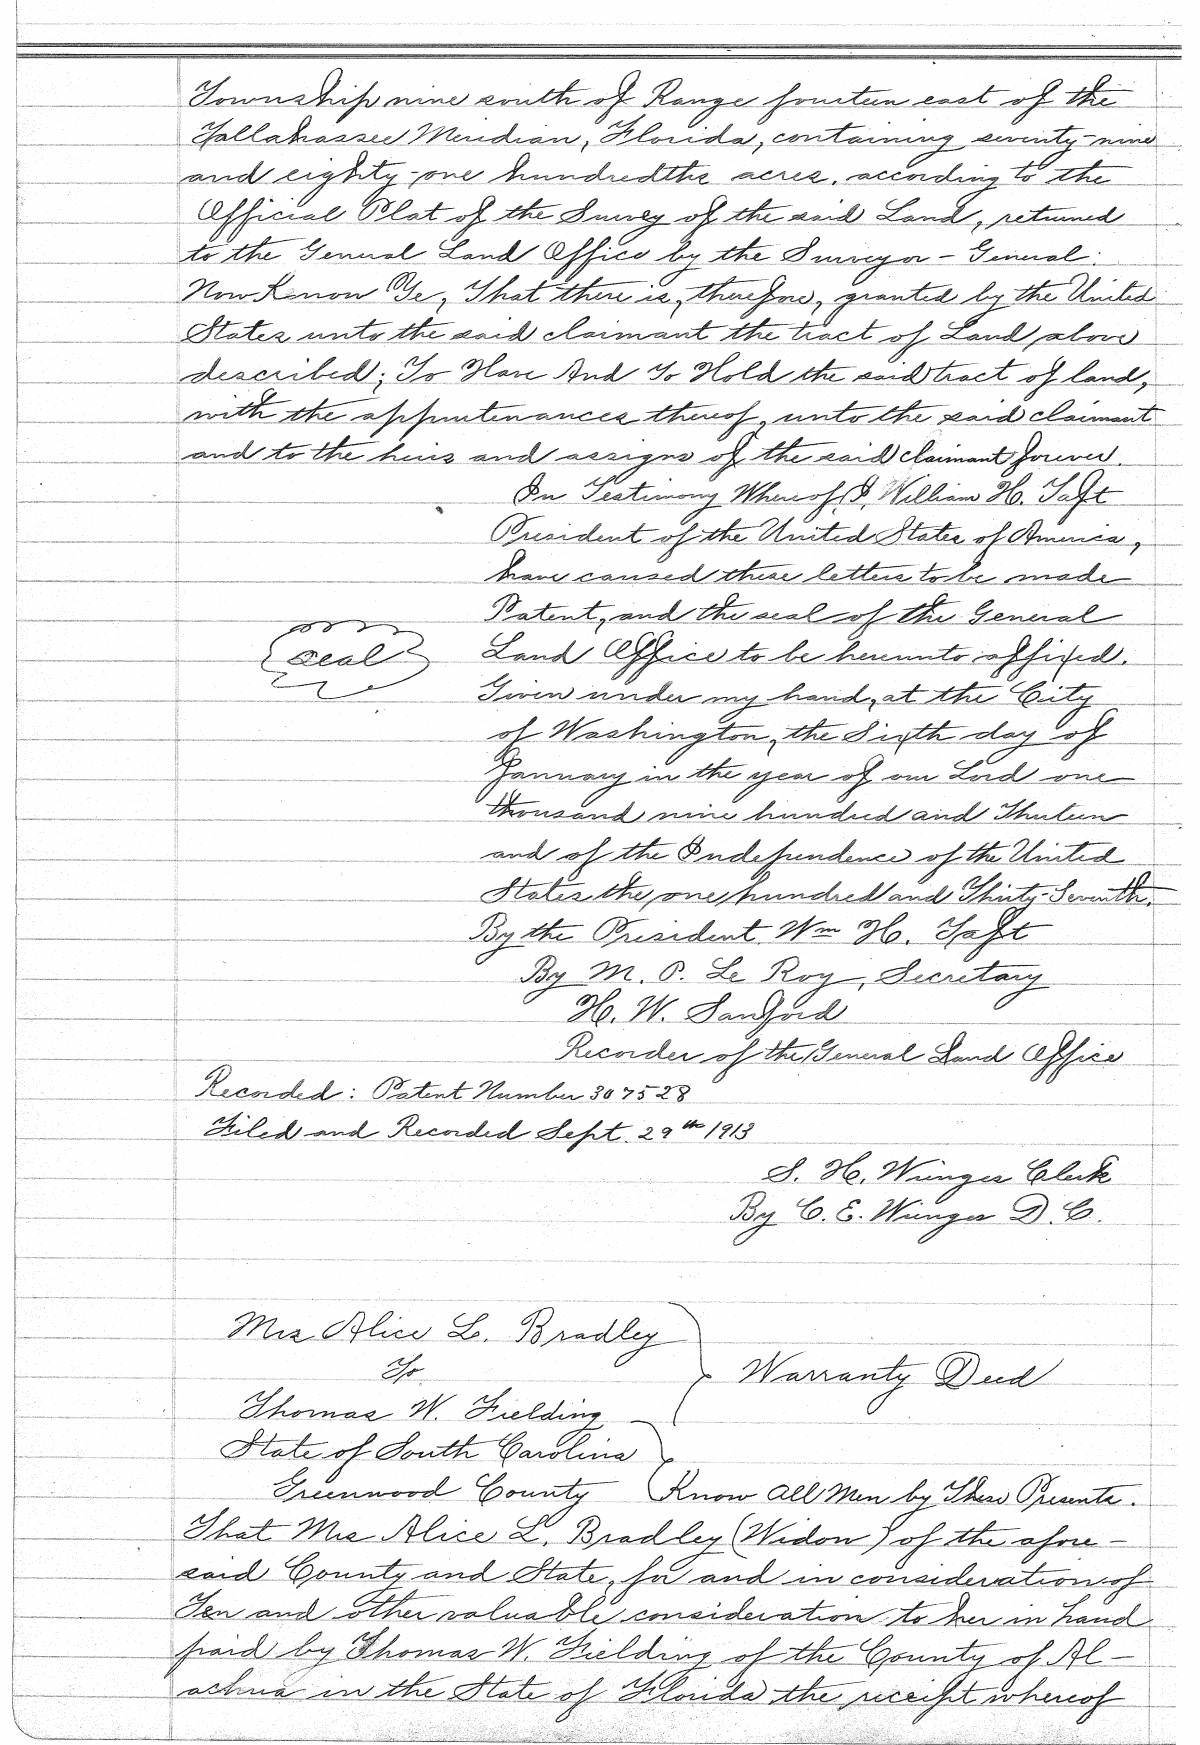 Township nine south of Range fourteen east of the
Tallahassee Meridian, Florida, containing seventy-nine
and eighty-one hundredths acres, according to the
Official Plat of the Survey of the said Land, returned
to the General Land Office by the Surveyor-General:
Now Know Ye, That there is, therefore, granted by the United
States unto the said claimant the tract of Land above
described; To Have And To Hold the said tract of land,
with the appurtenances thereof, unto the said claimant
and to the heirs and assigns of the said claimant forever.
In Testimony Whereof, I, William H. Taft
President of the United States of America,
have caused these letters to be made
Patent, and the seal of the General
Seal
Land Office to be hereunto affixed.
Given under my hand, at the City
of Washington, the Sixth day of
January in the year of our Lord one
thousand nine hundred and Thirteen
and of the Independence of the United
States the one hundred and Thirty-Seventh.
By the President Wm H. Taft
By M. P. Le Roy, Secretary
H. W. Sanford
Recorder of the General Land Office
Recorded: Patent Number 307528
Filed and Recorded Sept. 29th 1913
S. H. Wienges Clerk
By C. E. Wienges D. C.
Mrs Alice L. Bradley
To
Warranty Deed
Thomas W. Fielding
State of South Carolina
Greenwood County Know All Men by These Presents.
That Mrs Alice L. Bradley (Widow) of the afore-
said County and State, for and in consideration of
Ten and other valuable consideration to her in hand
paid by Thomas W. Fielding of the County of Al-
achua in the State of Florida the receipt whereof